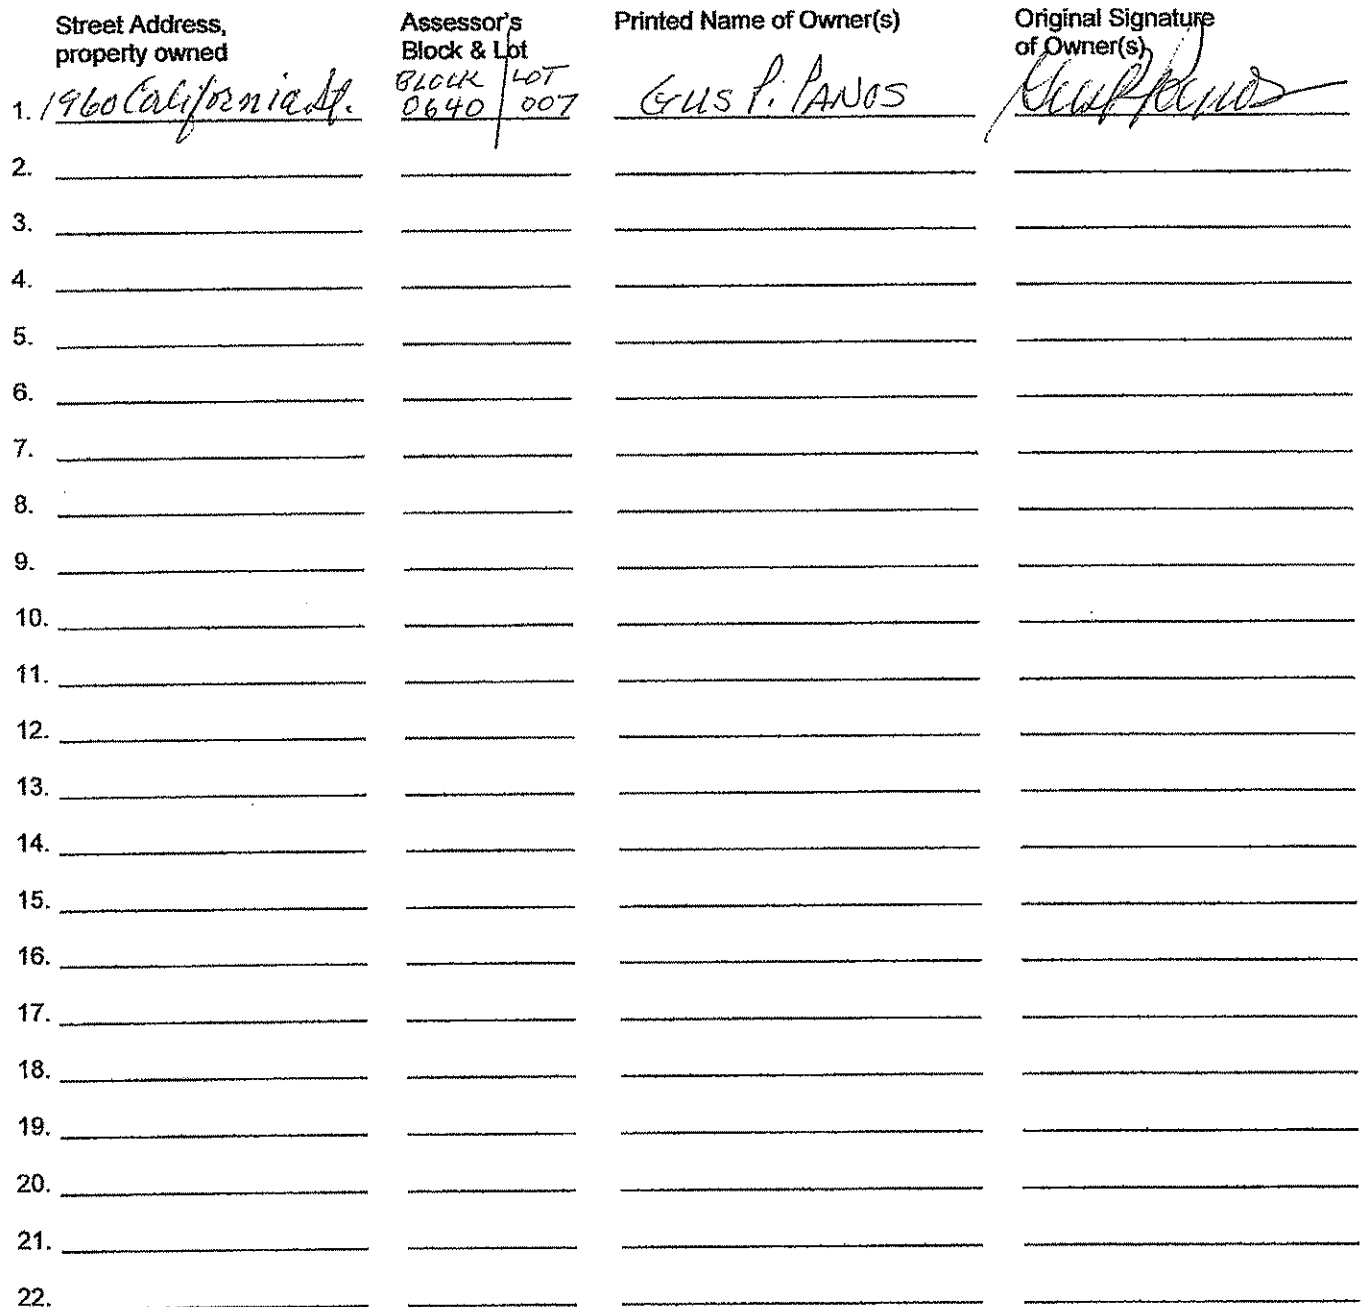 Street Address, property owned Assessor's Block & Lot Printed Name of Owner(s) Original Signature of Owner(s)
BLOCK LOT
1. 1960 California St. 0640 007 GUS P. PANOS Gus P. Panos
2.
3.
4.
5.
6.
7.
8.
9.
10.
11.
12.
13.
14.
15.
16.
17.
18.
19.
20.
21.
22.